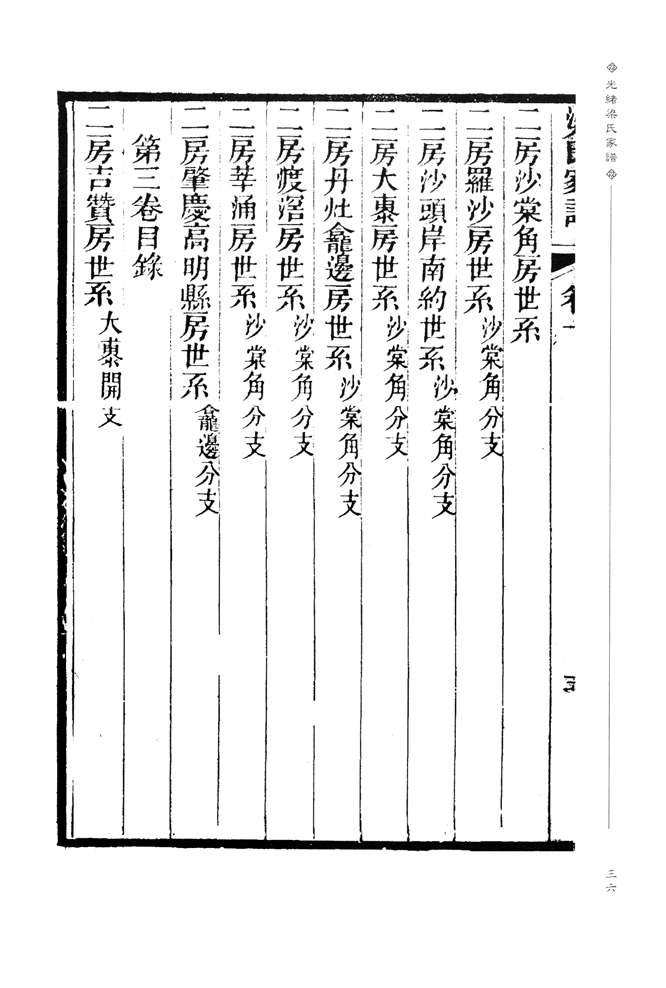 光緒梁氏家譜
三六
二房沙棠角房世系
二房羅沙房世系 沙棠角分支
二房沙頭岸南約世系 沙棠角分支
二房大㮚房世系 沙棠角分支
二房丹灶龕邊房世系 沙棠角分支
二房渡滘房世系 沙棠角分支
二房莘涌房世系 沙棠角分支
二房肇慶高明縣房世系 龕邊分支
第三卷目錄
二房吉贊房世系 大㮚開支